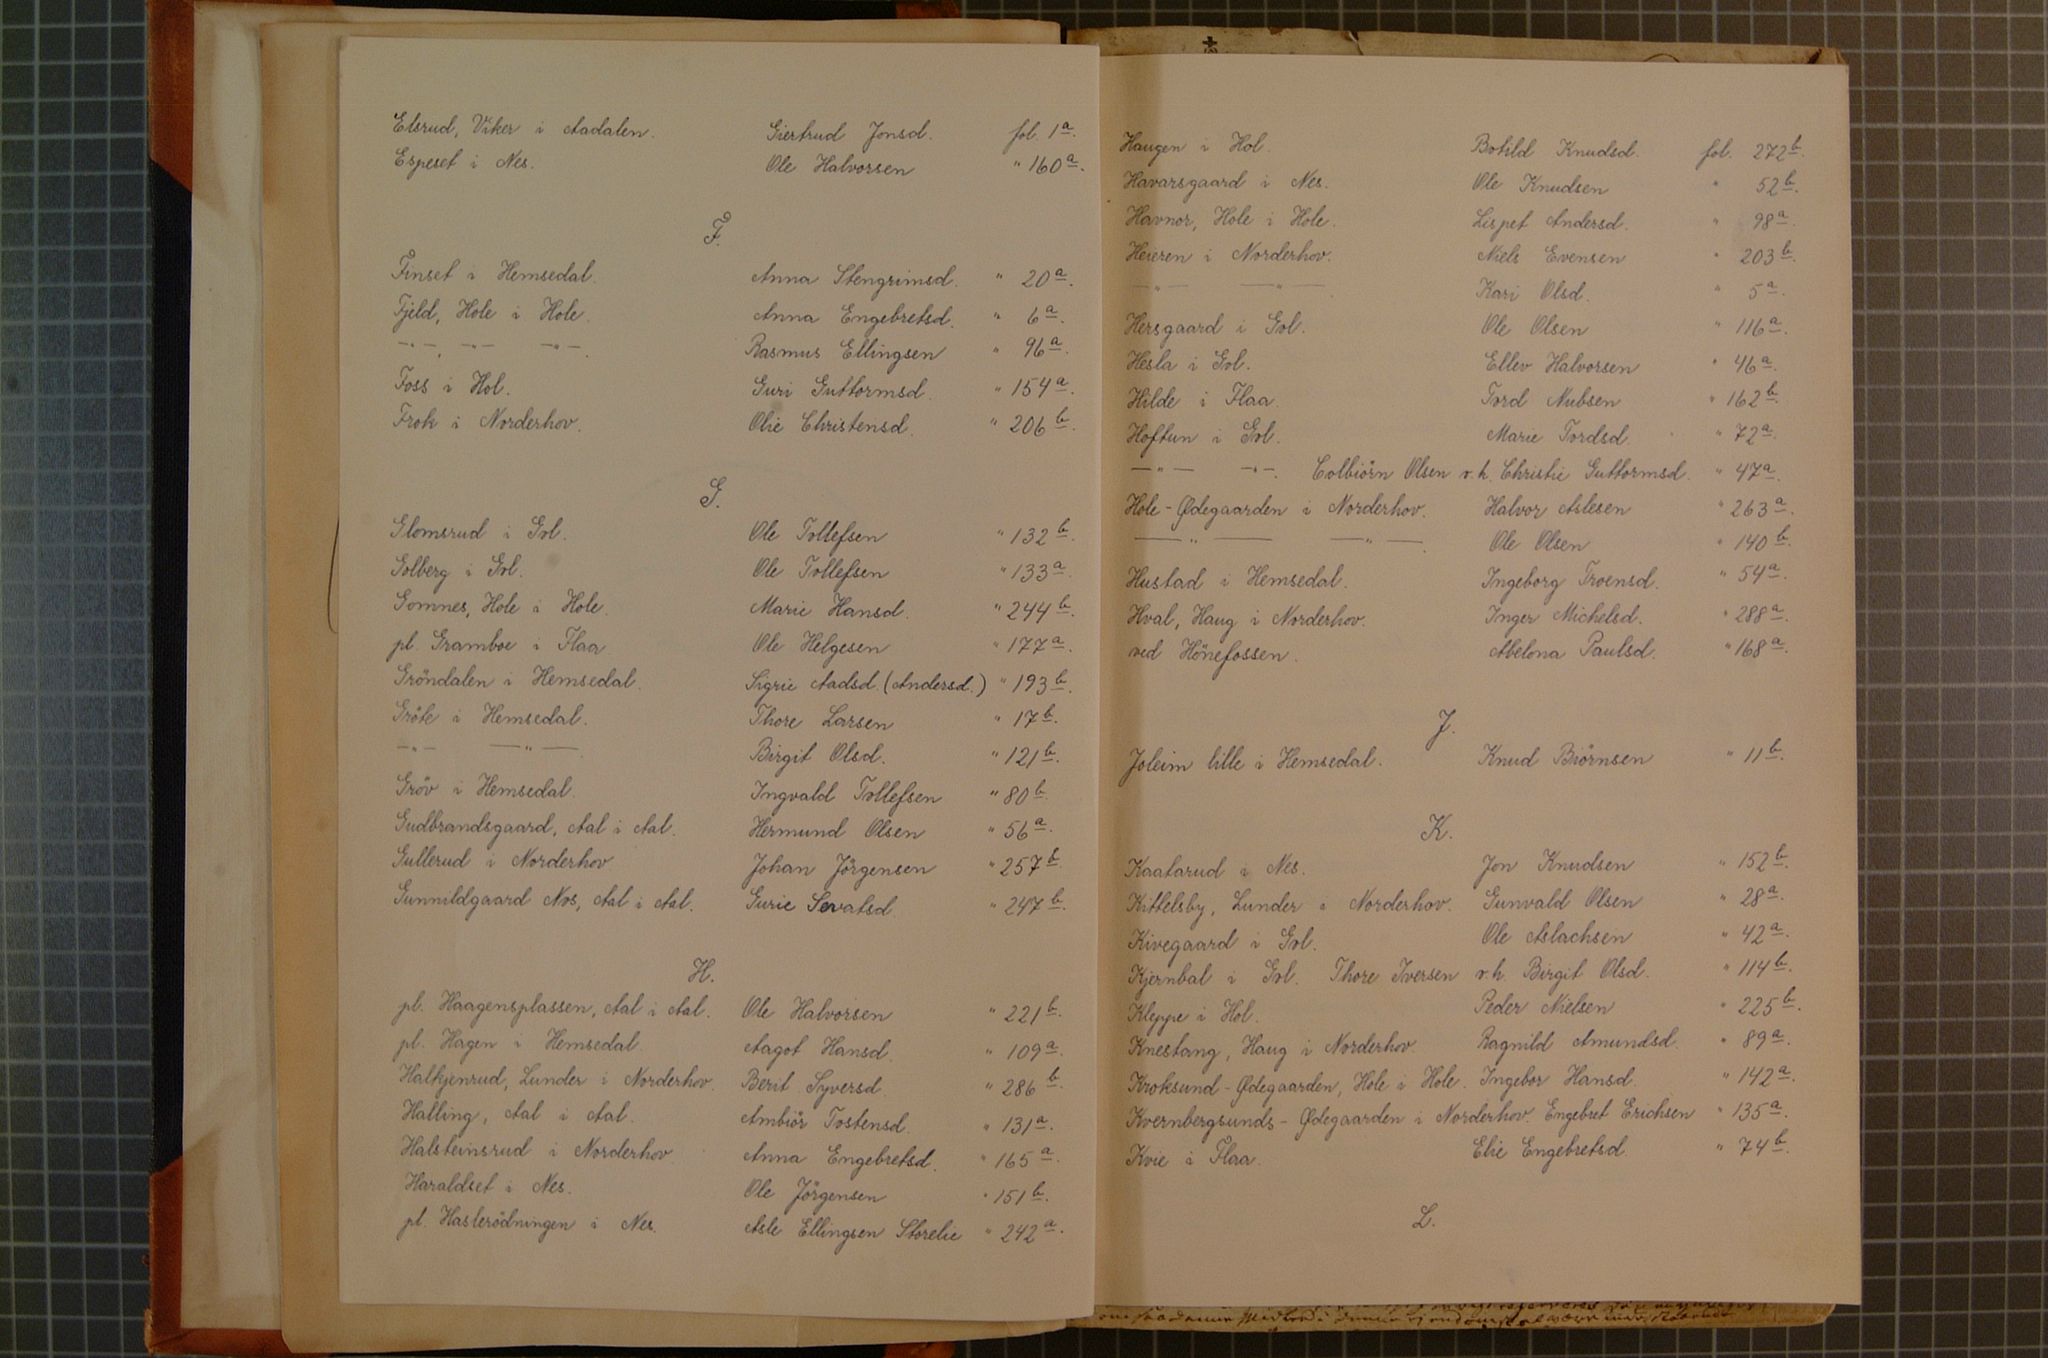 Elsrud, Viker i Aadalen. Giertrud Jonsd. fol. 1a.
Espeset i Nes. Ole Halvorsen " 160a.
F.
Finset i Hemsedal. Anna Stengrimsd. " 20a.
Fjeld, Hole i Hole. Anna Engebretsd. " 6a.
—"—, —"— —"—. Rasmus Ellingsen " 96a.
Foss i Hol. Guri Guttormsd. " 154a.
Frok i Norderhov. Olie Christensd. " 206b.
G.
Glomsrud i Gol. Ole Tollefsen " 132b.
Golberg i Gol. Ole Tollefsen " 133a.
Gomnes, Hole i Hole. Marie Hansd. " 244b.
pl. Gramboe i Flaa Ole Helgesen " 177a.
Gröndalen i Hemsedal. Sigrie Aadsd. (Andersd.) " 193b.
Gröte i Hemsedal. Thore Larsen " 17b.
—"— —"—. Birgit Olsd. " 121b.
Gröv i Hemsedal. Ingvald Tollefsen " 80b.
Gudbrandsgaard, Aal i Aal. Hermund Olsen " 56a.
Gullerud i Norderhov Johan Jörgensen " 257b.
Gunnildgaard Nos, Aal i Aal. Gurie Sevatsd. " 247b.
H.
pl. Haagensplassen, Aal i Aal. Ole Halvorsen " 221b.
pl. Hagen i Hemsedal. Aagot Hansd. " 109a.
Halkjenrud, Lunder i Norderhov. Berit Syversd. " 286b.
Halling, Aal i Aal. Ambiör Tostensd. " 131a.
Halsteinsrud i Norderhov. Anna Engebretsd. " 165a.
Haraldset i Nes. Ole Jörgensen " 151b.
pl. Haslerödningen i Nes. Asle Ellingsen Storelie " 242a.
Haugen i Hol. Botild Knudsd. fol. 272b.
Havarsgaard i Nes. Ole Knudsen " 52b.
Havnor, Hole i Hole. Lispet Andersd. " 98a.
Heieren i Norderhov. Niels Evensen " 203b.
—"— —"—. Kari Olsd. " 5a.
Hersgaard i Gol. Ole Olsen " 116a.
Hesla i Gol. Ellev Halvorsen " 46a.
Hilde i Flaa. Tord Nubsen " 162b.
Hoftun i Gol. Marie Tordsd. " 72a.
—"— —"—. Colbiörn Olsen v. h. Christie Guttormsd. " 47a.
Hole-Ødegaarden i Norderhov. Halvor Aslesen " 263a.
—"— —"—. Ole Olsen " 140b.
Hustad i Hemsedal. Ingeborg Troensd. " 54a.
Hval, Haug i Norderhov. Inger Michelsd. " 288a.
ved Hönefossen. Abelona Paulsd. " 168a.
J.
Joleim lille i Hemsedal. Knud Biörnsen " 11b.
K.
Kaatarud i Nes. Jon Knudsen " 152b.
Kittelsby, Lunder i Norderhov. Gunvald Olsen " 28a.
Kivegaard i Gol. Ole Aslachsen " 42a.
Kjernbal i Gol. Thore Iversen v. h. Birgit Olsd. " 114b.
Kleppe i Hol. Peder Nielsen " 225b.
Knestang, Haug i Norderhov. Ragnild Amundsd. " 89a.
Kroksund-Ødegaarden, Hole i Hole. Ingebor Hansd. " 142a.
Kvernbergsunds-Ødegaarden i Norderhov. Engebret Erichsen " 135a.
Kvie i Flaa. Elie Engebretsd. " 74b.
L.